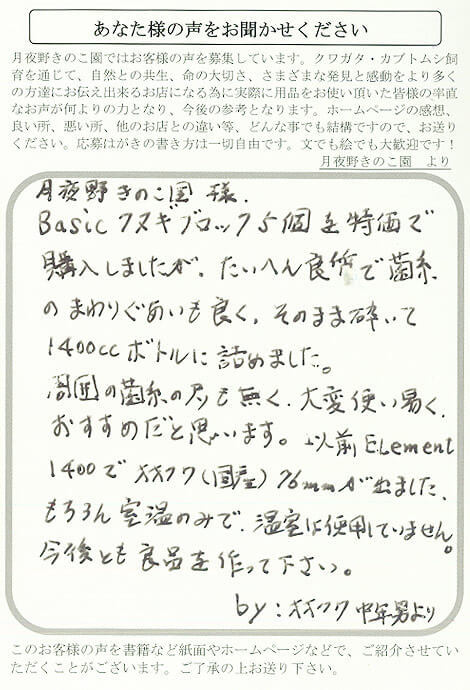 あなた様の声をお聞かせください
月夜野きのこ園ではお客様の声を募集しています。クワガタ・カブトムシ飼
育を通じて、自然との共生、命の大切さ、さまざまな発見と感動をより多く
の方達にお伝え出来るお店になる為に実際に用品をお使い頂いた皆様の率直
なお声が何よりの力となり、今後の参考となります。ホームページの感想、
良い所、悪い所、他のお店との違い等、どんな事でも結構ですので、お送り
ください。応募はがきの書き方は一切自由です。文でも絵でも大歓迎です！
月夜野きのこ園　より
月夜野きのこ園 様.
Basic クヌギブロック5個を特価で
購入しましたが、たいへん良質で菌糸
のまわりぐあいも良く、そのまま砕いて
1400ccボトルに詰めました。
の菌糸の も無く、大変使い易く、
おすすめだと思います。以前 Element
1400でオオクワ(国産)76mmが出ました、
もちろん室温のみで、温室は使用していません。
今後とも良品を作って下さい。
by: オオクワ中年男より
このお客様の声を書籍など紙面やホームページなどで、ご紹介させてい
ただくことがございます。ご了承の上お送り下さい。